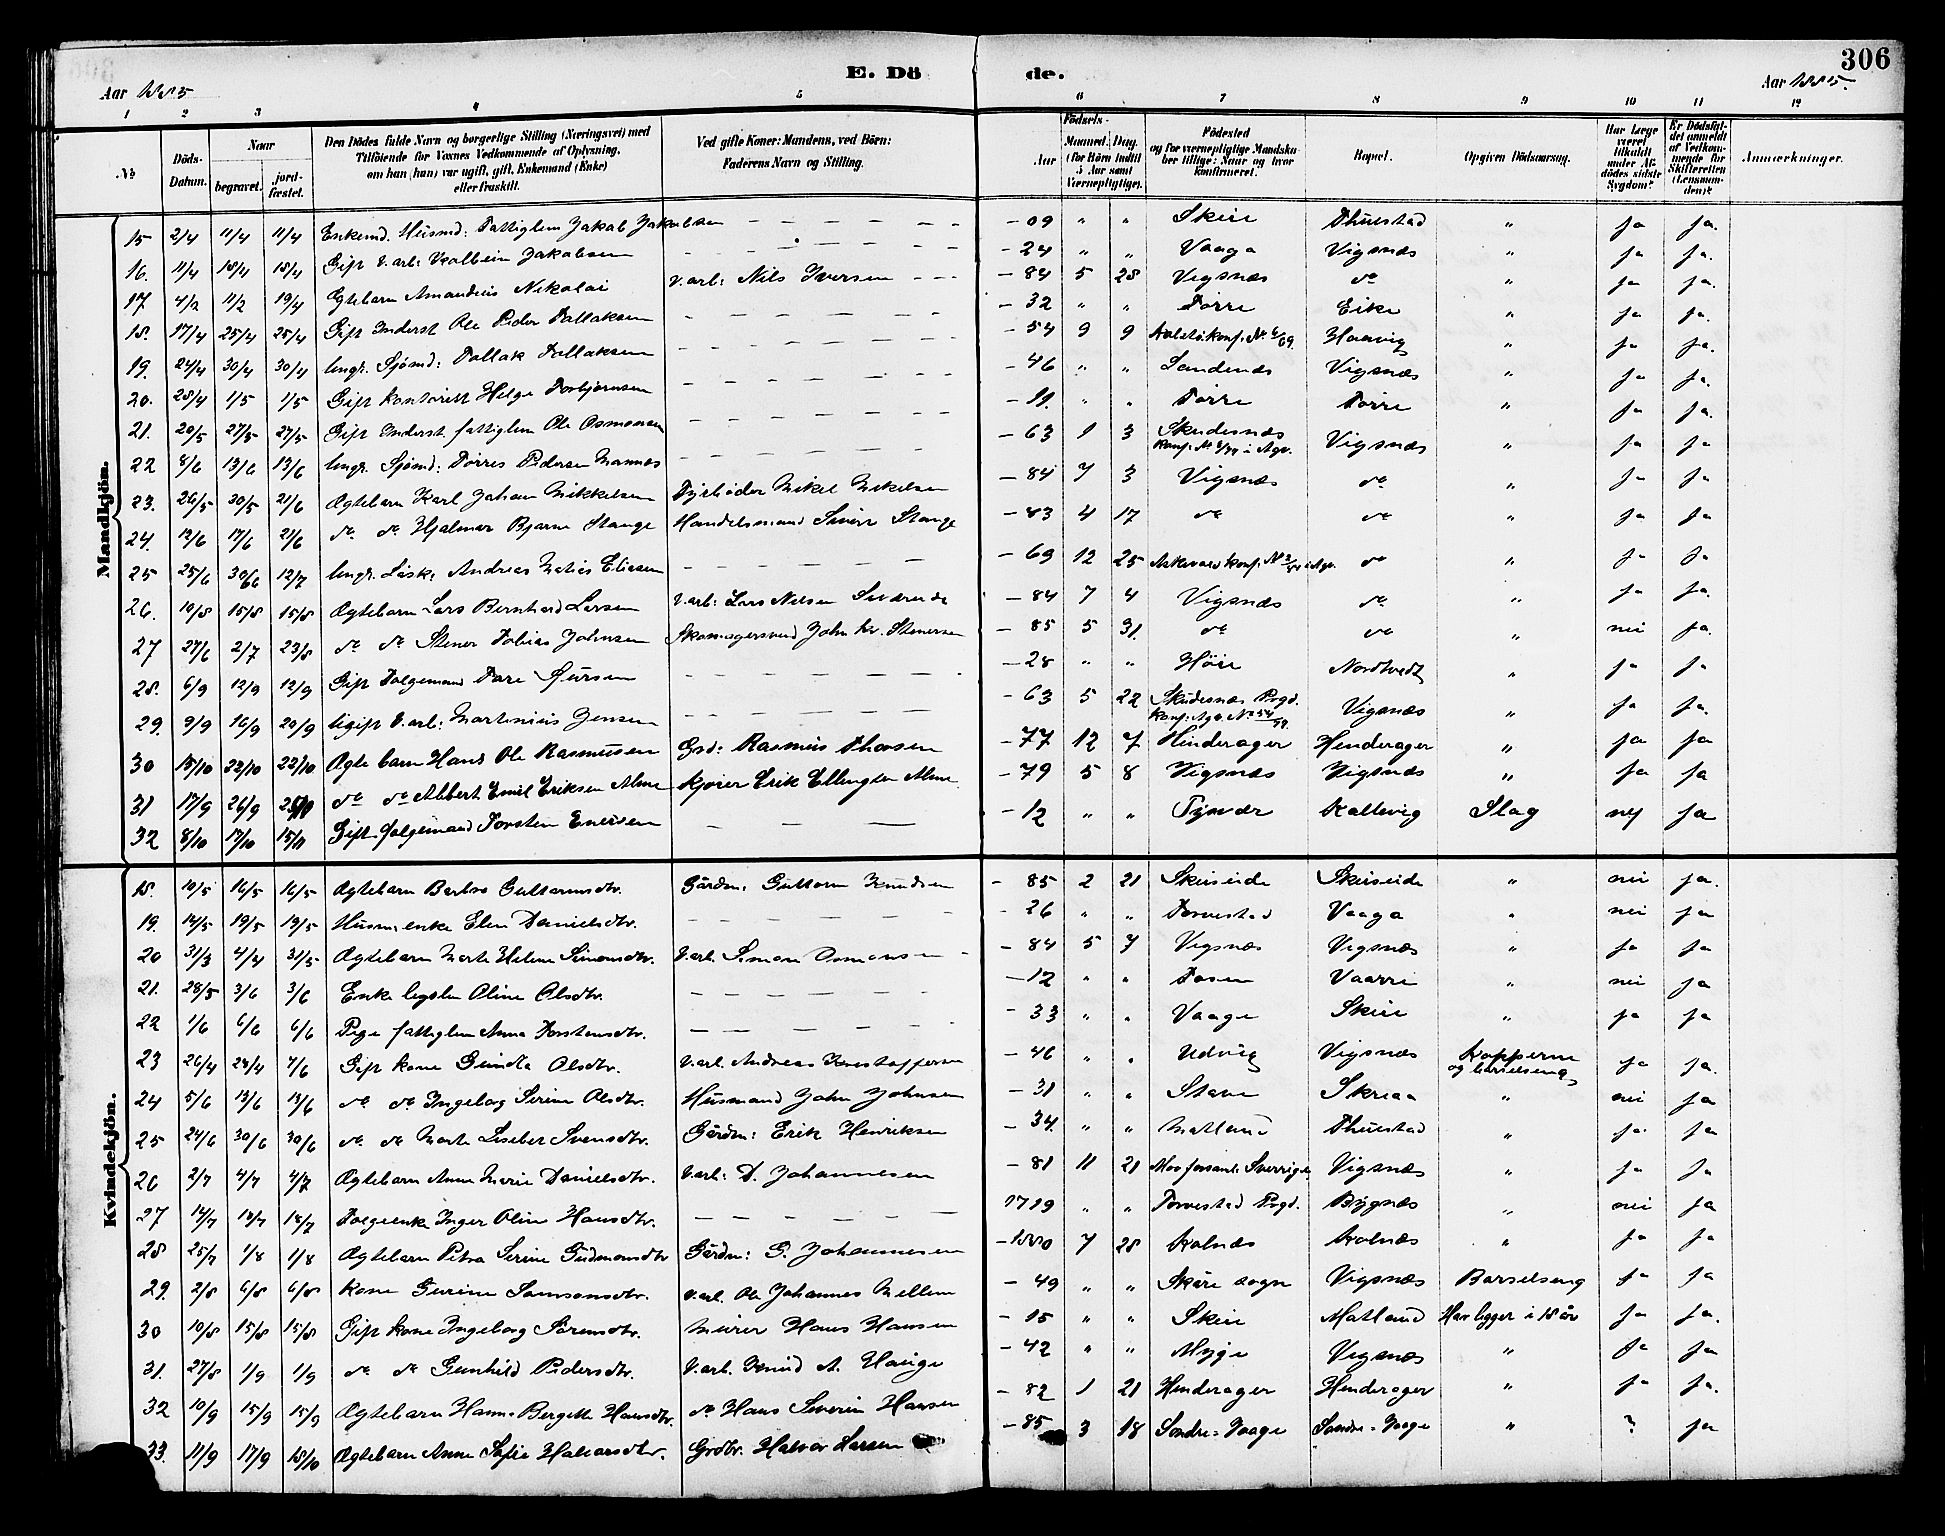 306
E. Döde.
Aar 1885
Aar 1885.
1 2 3 4 5 6 7 8 9 10 11 12
№
Döds-Datum.
Naar
begravet.
jord-fæstet.
Den Dödes fulde Navn og borgerlige Stilling (Næringsvei) med Tilföiende for Voxnes Vedkommende af Oplysning, om han (hun) var ugift, gift, Enkemand (Enke) eller fraskilt.
Ved gifte Koner: Mandens, ved Börn: Faderens Navn og Stilling.
Födsels-
Aar
Maaned. Dag.
(for Börn indtil 5 Aar samt Værnepligtige).
Födested
og for værnepligtige Mandska-ber tillige: Naar og hvor konfirmeret.
Bopæl.
Opgiven Dödsaarsag.
Har Læge været tilkaldt under Af-dödes sidste Sygdom?
Er Dödsfal-det anmeldt af Vedkom-mende for Skifteretten (Lensman-den)?
Anmærkninger.
Mandkjön.
15 2/4 11/4 11/4 Enkemd. Husmd: Fattiglem Jakob Jakobsen — 09 " " Skeie Thuestad " ja ja.
16. 11/4 18/4 18/4 Gift V. arb: Jakobsen — 24 " " Vaaga Vigsnæs " ja ja.
17 4/2 11/2 19/4 Ægtebarn Amandus Nikolai V. arb: Nils Iversen — 84 5 28 Vigsnæs do " ja ja.
18. 17/4 25/4 25/4 Gift Inderst Ole Peder Tallaksen — 32 " " Førre Eike " ja ja.
19. 24/4 30/4 30/4 Ungk. Sjømd: Tallak Tallaksen — 54 9 9 Haavig " ja ja.
20. 28/4 1/5 1/5 Gift Kontorist Helge Torbjørnsen — 46 " " Sandenes Vigsnæs " ja ja.
21. 20/5 27/5 27/5 Gift Inderst fattiglem Ole Osmonsen — 11. " " Førre Førre " ja ja
22 8/6 13/6 13/6 Ungk. Sjømd: Tørres Pedersen Mannes — 63 1 3 Skudesnæs Vigsnæs " ja ja
23. 26/5 30/5 21/6 Ægtebarn Karl Johan Mikkelsen Fyrbøder Mikel Mikelsen — 84 7 3 Vigsnæs do " ja ja
24. 12/6 17/6 21/6 do do Hjalmar Bjarne Stange Handelsmand Stange — 83 4 17 do do " ja ja
25 25/6 30/6 12/7 Ungk. Andreas Matias Eliasen — 69 12 25 do " ja ja
26. 10/8 15/8 15/8 Ægtebarn Lars Bernhard Larsen V. arb: Lars Nilsen — 84 7 4 Vigsnæs do " ja ja.
27 27/6 2/7 23/8 do do Stener Tobias Johnsen Skomagersvend John Kr. Stenersen — 85 5 31. do do " nei ja.
28. 6/9 12/9 12/9 Gift Folgemand Tore Sjursen — 28 " " Høie Nordtvedt " ja ja
29. 9/9 16/9 20/9 Ugift V. arb: Martinius Jensen — 63 5 22 Skudesnæs Prgd. Vigsnæs " ja ja.
30 15/10 22/10 22/10 Ægtebarn Hans Ole Rasmusen Grd: Rasmus Thorsen — 77 12 7 Hinderager Hinderager " ja ja
31 17/9 26/9 do do Albert Emil Eriksen Alme Kjører Erik Ellingsen Alme — 79 5 8 Vigsnæs Vigsnæs " ja ja
32 8/10 17/10 15/11 Gift folgemand Torsten Enersen — 12 " " Tysvær Kallevig Slag nej ja
Kvindekjön.
18. 10/5 16/5 16/5 Ægtebarn Barbro Guttormsdtr. Gårdm: Guttorm Knudsen — 85 2 21 Skeiseide Skeiseide " nei ja.
19. 14/5 19/5 19/5 Husm. enke Elen Danielsdtr. — 26 " " Torvestad Vaaga " nei ja
20 31/3 4/4 31/5 Ægtebarn Marte Helene Simonsdtr. V. arb. Simon Osmonsen — 84 5 7 Vigsnæs Vigsnæs " ja ja
21. 28/5 3/6 3/6 Enke legslm Oline Olsdtr. — 12 " " Fosen Vaarri " nei ja
22 1/6 6/6 6/6 Pige fattiglem Anna Torstensdtr. — 33 " " Vaage Skeie " ja ja
23 26/4 29/4 7/6 Gift kone Gunda Olsdtr. V. arb. Andreas Kristoffersen — 46 " " Udvig Vigsnæs Kopperne og barselseng ja ja.
24 5/6 13/6 13/6 do do Ingeborg Serine Olsdtr. Husmand John Johnsen — 31 " " Stave Skreaa " nei ja
25 24/6 30/6 30/6 do do Marte Lisebet Svensdtr. Gårdm: Erik Henriksen — 34. " " Matland Thuestad " ja ja
26 2/7 4/7 4/7 Ægtebarn Anna Marie Danielsdtr. V. arb: D. Johannesen — 81 11 21 Sverrige Vigsnæs " ja ja
27 14/7 18/7 18/7 Folgeenke Inger Oline Hansdtr. — 1799 " " Torvestad Prgd. Bygnæs " nei ja
28 25/7 1/8 1/8 Ægtebarn Petra Serine Gudmonsdtr Gårdm: G. Johannesen — 1880 7 28 Kolnæs Kolnæs " ja ja
29. 2/8 6/8 6/8 Kone Gurine Samsonsdtr. V. arb. Ole Johannes Mellem — 49 " " Skåre sogn Vigsnæs Barselseng ja ja
30 10/8 15/8 15/8 Gift kone Ingeborg Sørensdtr. Murer Hans Hansen — 15 " " Skeie Matland Har ligget i 18 år ja ja.
31. 27/8 1/9 1/9 do do Gunhild Pedersdtr. V. arb. Knud A. Hauge — 42 " " Myge Vigsnæs " ja ja
32 10/9 15/9 15/9 Ægtebarn Hanna Bergitte Hansdtr. do Hans Severin Hansen — 82 1 21 Hinderager Hinderager " ja ja.
33. 11/9 17/9 18/10 Ægtebarn Anne Sofie Halvarsdtr. Grdbr. Halvor Larsen — 85 3 18 Søndre-Vaage Søndre-Vaage " ? ja